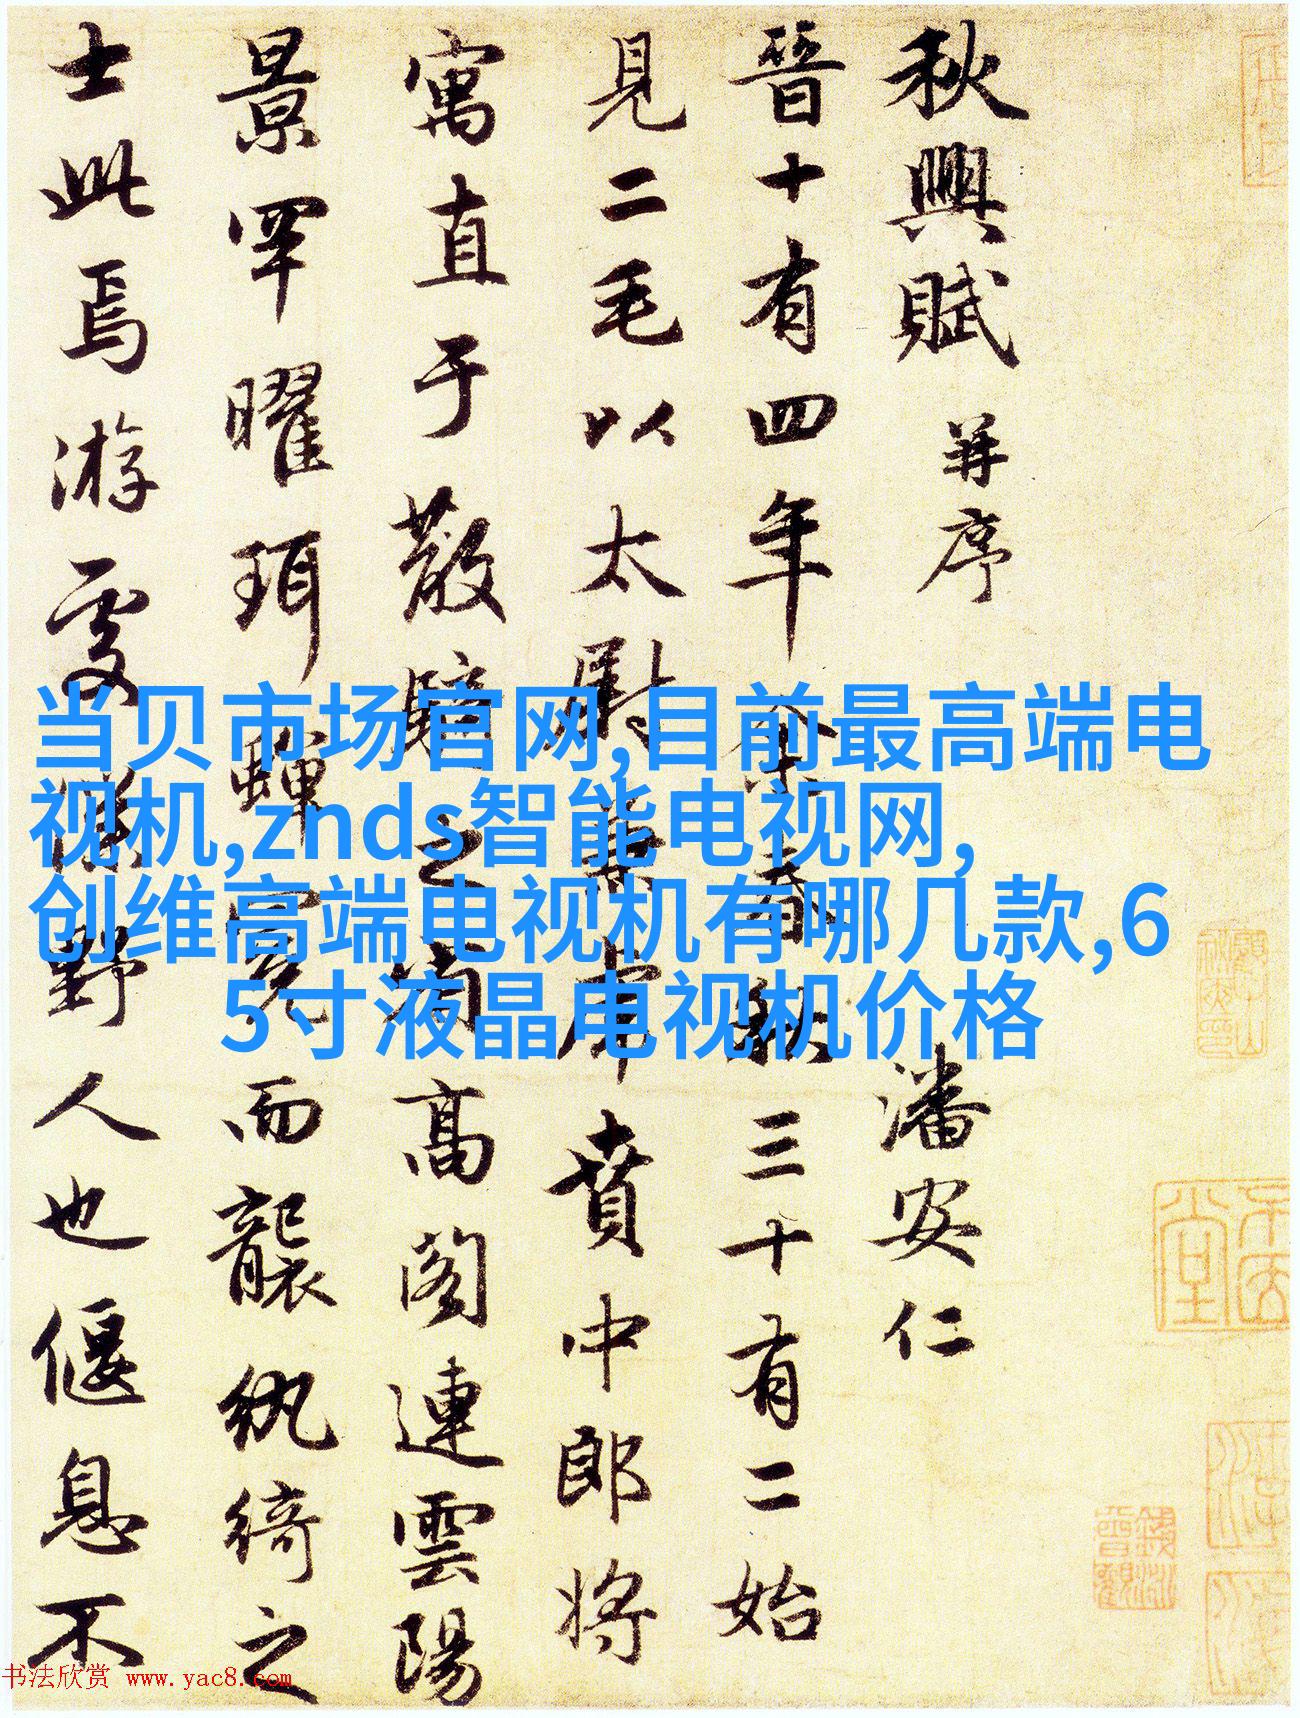 秋興賦 并序 潘安仁
晉十有四年余春秋三十有二始
見二毛以太尉兼虎賁中郎将
寓直于散騎之省高閣連雲陽
景罕曜珥蟬冕而襲紈綺之
士此焉游處僕野人也偃息不
当贝市场官网,目前最高端电
视机,znds智能电视网,
创维高端电视机有哪几款,6
5寸液晶电视机价格
书法欣赏 www.yac8.com